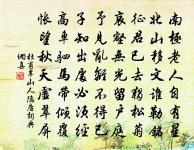 南極老人自有星
北山移文誰勒銘
徵君已去獨松菊
哀壑無光留戶庭
予見亂離不得已
子知出處必須經
高車駟馬帶傾覆
悵望秋天虛翠屏
杜甫覃山人隱居詞典
網